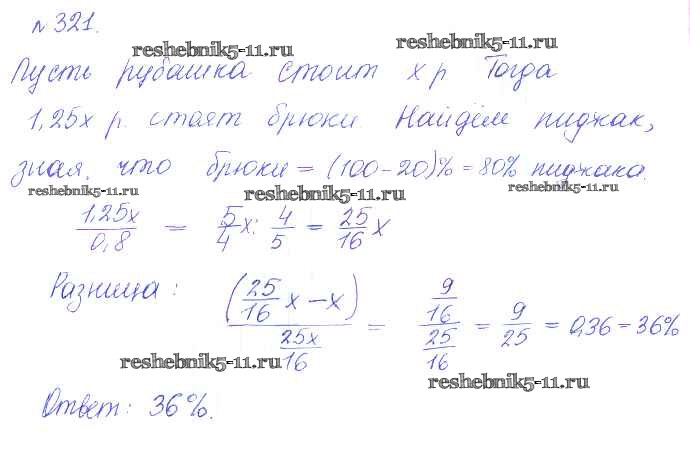 №321.
reshebnik5-11.ru reshebnik5-11.ru
Пусть рубашка стоит x р Тогда
1,25x р. стоят брюки. Найдём пиджак,
зная, что брюки = (100-20)% = 80% пиджака.
reshebnik5-11.ru reshebnik5-11.ru reshebnik5-11.ru
1,25x/0,8 = 5/4 x : 4/5 = 25/16 x
Разница: (25/16 x - x)/(25x/16) = (9/16)/(25/16) = 9/25 = 0,36 = 36%
reshebnik5-11.ru reshebnik5-11.ru
Ответ: 36%.